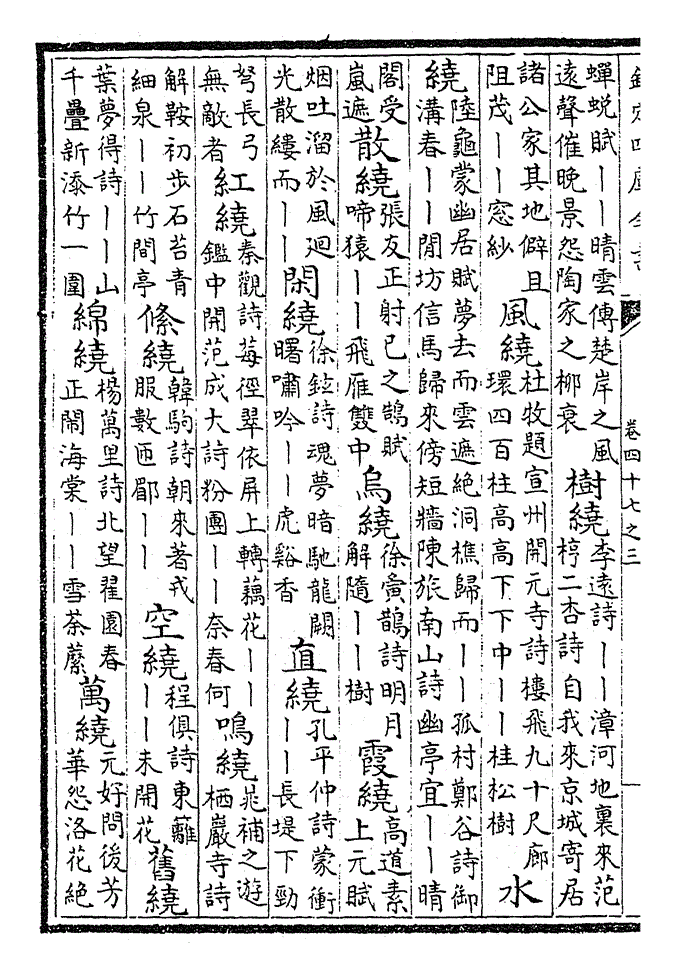 欽定四庫全書　卷四十七之三
蟬蜕賦丨丨晴雲傅楚岸之風遠聲催晚景怨陶家之柳衰　樹繞　李遠詩丨丨漳河地裏來范梈二杏詩自我來京城寄居
諸公家其地僻且阻茂丨丨窓紗　風繞　杜牧題宣州開元寺詩樓飛九十尺廊環四百柱高高下下中丨丨桂松樹　水
繞　陸龜蒙幽居賦夢去而雲遮絶洞樵歸而丨丨孤村鄭谷詩御溝春丨丨閒坊信馬歸來傍短牆陳旅南山詩幽亭宜丨丨晴
閣受嵐遮　散繞　張友正射已之鵠賦啼猿丨丨飛雁雙中　烏繞　徐夤鵲詩明月解隨丨丨樹　霞繞　高道素上元賦
烟吐溜於風廻光散縷而丨丨　閑繞　徐鉉詩魂夢暗馳龍闕曙嘯吟丨丨虎谿香　直繞　孔平仲詩蒙衝丨丨長堤下勁
弩長弓無敵者　紅繞　秦觀詩莓徑翠依屏上轉藕花丨丨鑑中開范成大詩粉團丨丨奈春何　鳴繞　晁補之遊栖巖寺詩
解鞍初步石苔青細泉丨丨竹間亭　絛繞　韓駒詩朝來著戎服數匝郿丨丨　空繞　程俱詩東籬丨丨未開花　舊繞
葉夢得詩丨丨山千疊新添竹一圍　綿繞　楊萬里詩北望翟園春正鬧海棠丨丨雪荼䕷　萬繞　元好問後芳華怨洛花絶